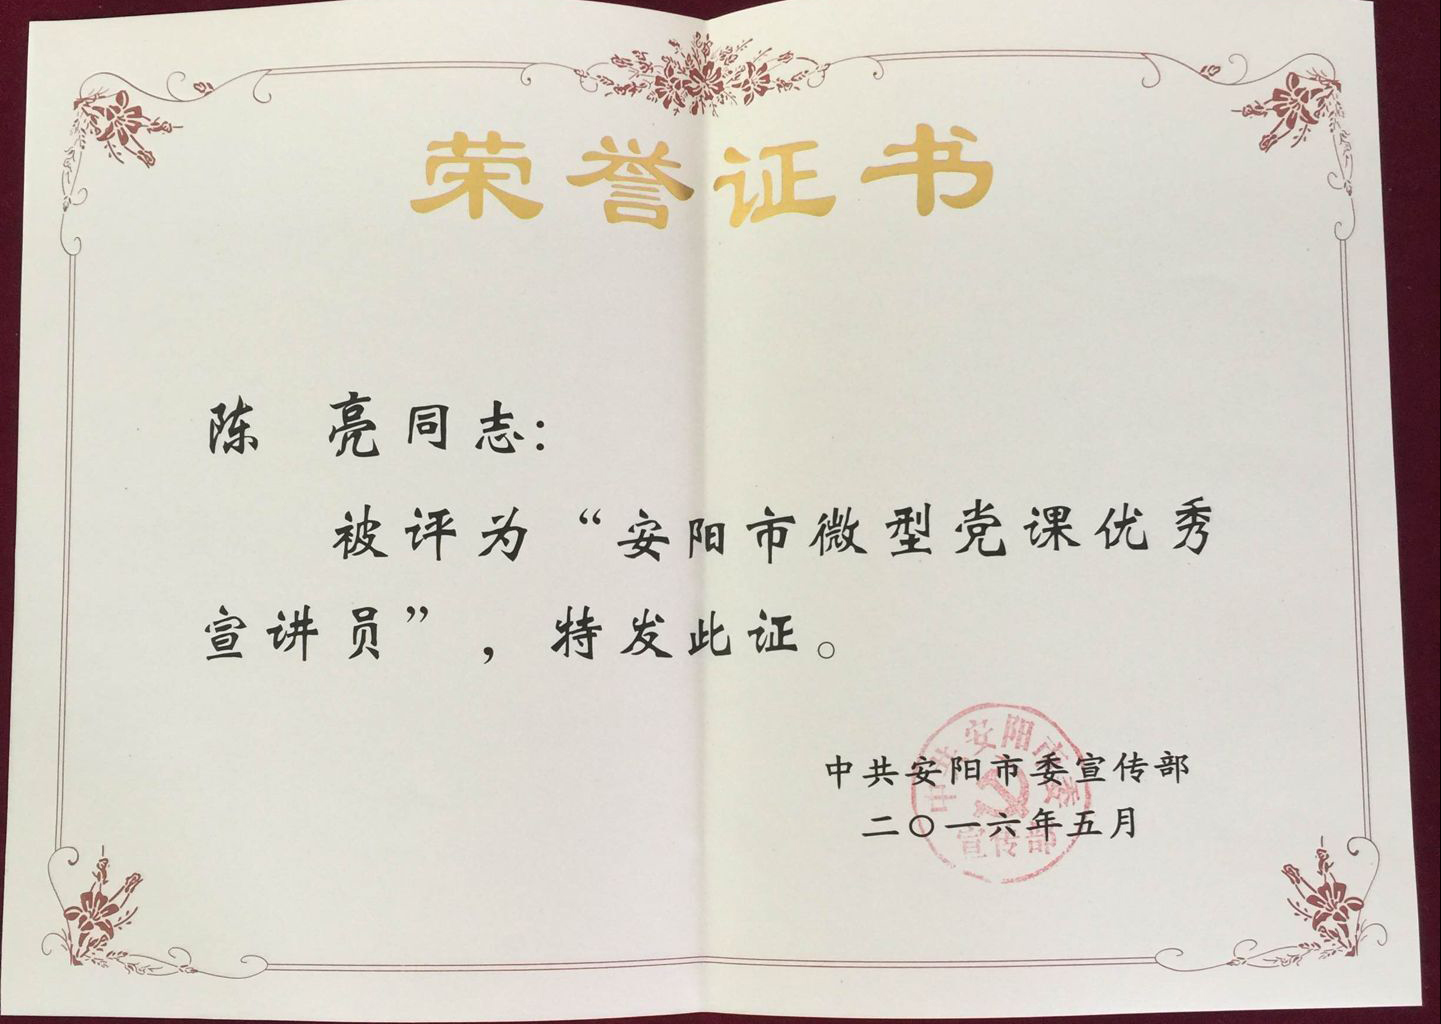 荣誉证书
陈 亮同志：
被评为“安阳市微型党课优秀
宣讲员”，特发此证。
中共安阳市委宣传部
二〇一六年五月
中共安阳市委
宣传部